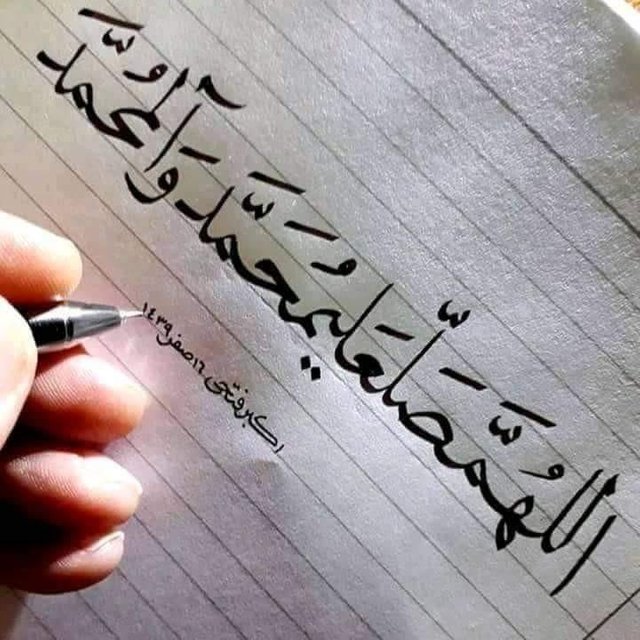 اللَّهُمَّ صَلِّ عَلَى مُحَمَّدٍ وَآلِ مُحَمَّدٍ
اکبر فتحی ١٢ صفر ١٤٣٩